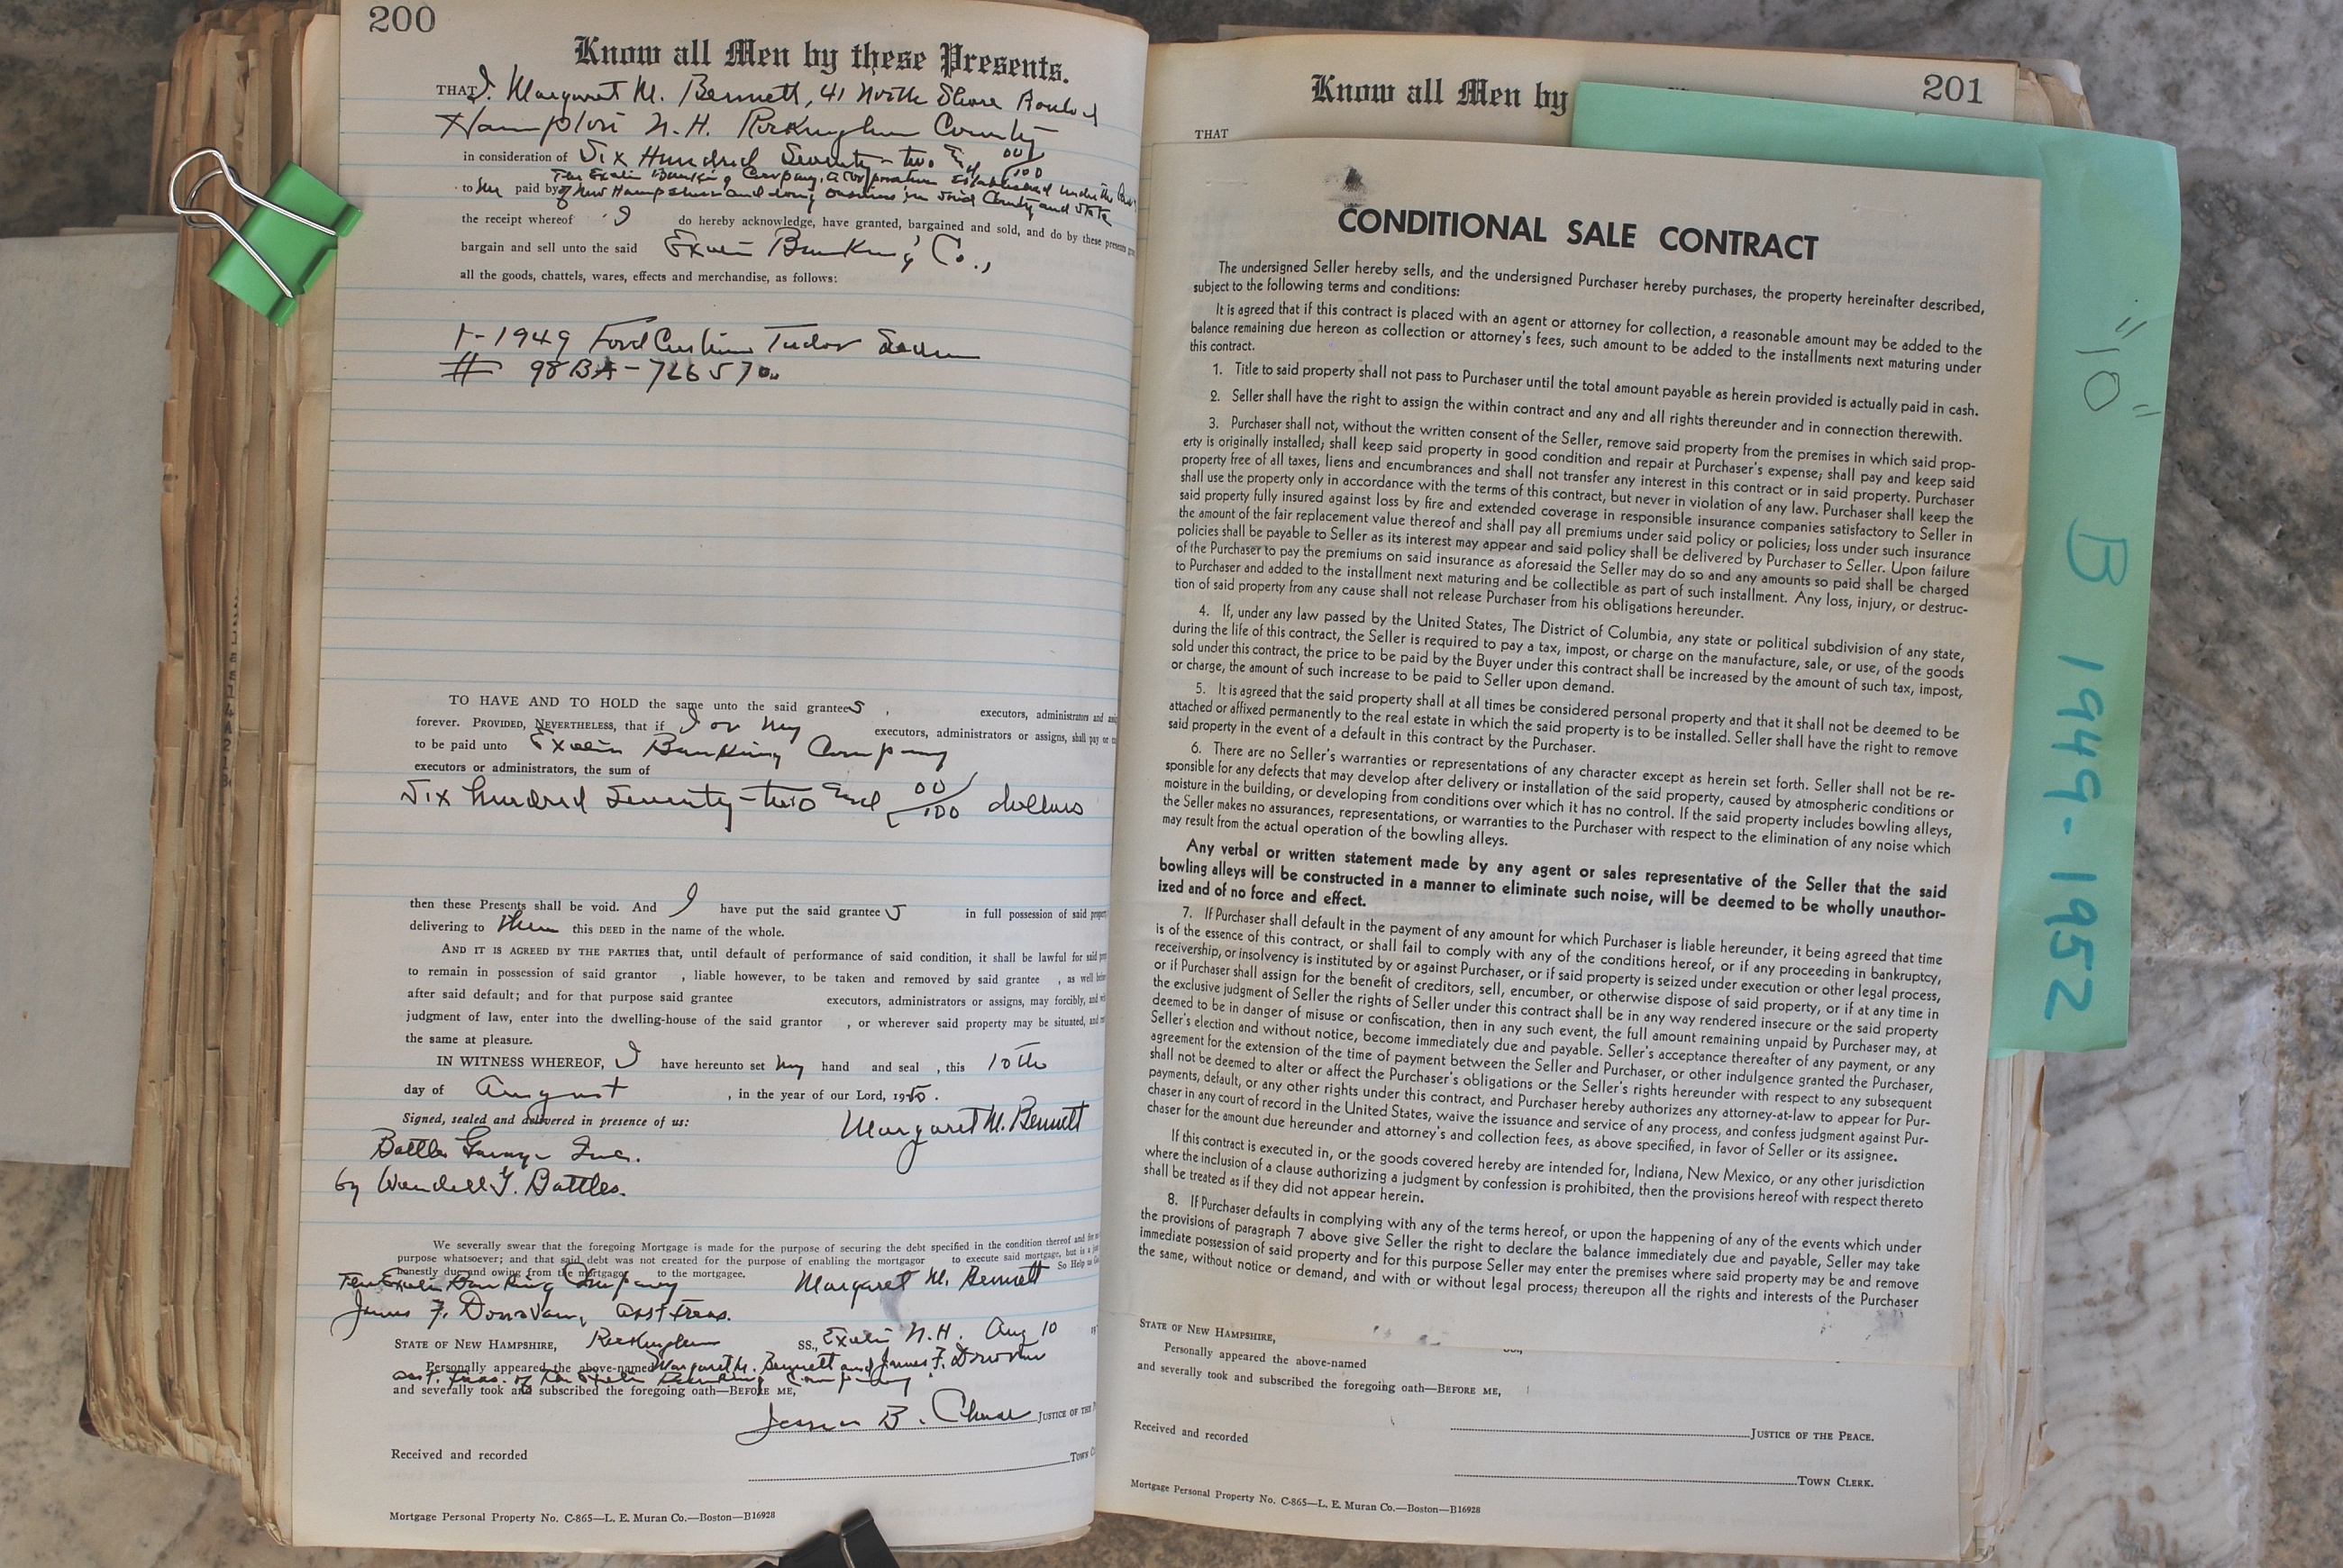 200
Know all Men by these Presents.
THAT I, Margaret M. Bennett, 41 North Shore
Hampton N.H. Rockingham County
in consideration of Six Hundred Seventy-two and 00/100
The Exeter Banking Company, a corporation established under the
to me paid by of New Hampshire and doing business in said County and State
the receipt whereof I do hereby acknowledge, have granted, bargained and sold, and do by these presents
bargain and sell unto the said Exeter Banking Co.,
all the goods, chattels, wares, effects and merchandise, as follows:
1-1949 Ford Custom Tudor Sedan
# 98BA-726570
TO HAVE AND TO HOLD the same unto the said grantees, executors, administrators and
forever. PROVIDED, NEVERTHELESS, that if I or my executors, administrators or assigns, shall pay or
to be paid unto Exeter Banking Company
executors or administrators, the sum of
Six hundred Seventy-two and 00/100 dollars
then these Presents shall be void. And I have put the said grantee s in full possession of said
delivering to them this DEED in the name of the whole.
AND IT IS AGREED BY THE PARTIES that, until default of performance of said condition, it shall be lawful for said
to remain in possession of said grantor , liable however, to be taken and removed by said grantee , as well
after said default; and for that purpose said grantee executors, administrators or assigns, may forcibly, and
judgment of law, enter into the dwelling-house of the said grantor , or wherever said property may be situated, and
the same at pleasure.
IN WITNESS WHEREOF, I have hereunto set my hand and seal , this 10th
day of August , in the year of our Lord, 1950.
Signed, sealed and delivered in presence of us: Margaret M. Bennett
Battles Garage Inc.
by Wendell G. Battles.
We severally swear that the foregoing Mortgage is made for the purpose of securing the debt specified in the condition thereof and for
purpose whatsoever; and that said debt was not created for the purpose of enabling the mortgagor to execute said mortgage, but is a
honestly due and owing from the mortgagor to the mortgagee. So Help
The Exeter Banking Company Margaret M. Bennett
James F. Donovan, asst treas.
STATE OF NEW HAMPSHIRE, Rockingham SS., Exeter N.H. Aug 10
Personally appeared the above-named Margaret M. Bennett and James F. Donovan
asst. treas. of the Exeter Banking Company
and severally took and subscribed the foregoing oath—BEFORE ME,
B. Chase JUSTICE OF THE
Received and recorded
TOWN
Mortgage Personal Property No. C-865—L. E. Muran Co.—Boston—B16928
201
Know all Men by
THAT
CONDITIONAL SALE CONTRACT
The undersigned Seller hereby sells, and the undersigned Purchaser hereby purchases, the property hereinafter described,
subject to the following terms and conditions:
It is agreed that if this contract is placed with an agent or attorney for collection, a reasonable amount may be added to the
balance remaining due hereon as collection or attorney's fees, such amount to be added to the installments next maturing under
this contract.
1. Title to said property shall not pass to Purchaser until the total amount payable as herein provided is actually paid in cash.
2. Seller shall have the right to assign the within contract and any and all rights thereunder and in connection therewith.
3. Purchaser shall not, without the written consent of the Seller, remove said property from the premises in which said prop-
erty is originally installed; shall keep said property in good condition and repair at Purchaser's expense; shall pay and keep said
property free of all taxes, liens and encumbrances and shall not transfer any interest in this contract or in said property. Purchaser
shall use the property only in accordance with the terms of this contract, but never in violation of any law. Purchaser shall keep the
said property fully insured against loss by fire and extended coverage in responsible insurance companies satisfactory to Seller in
the amount of the fair replacement value thereof and shall pay all premiums under said policy or policies; loss under such insurance
policies shall be payable to Seller as its interest may appear and said policy shall be delivered by Purchaser to Seller. Upon failure
of the Purchaser to pay the premiums on said insurance as aforesaid the Seller may do so and any amounts so paid shall be charged
to Purchaser and added to the installment next maturing and be collectible as part of such installment. Any loss, injury, or destruc-
tion of said property from any cause shall not release Purchaser from his obligations hereunder.
4. If, under any law passed by the United States, The District of Columbia, any state or political subdivision of any state,
during the life of this contract, the Seller is required to pay a tax, impost, or charge on the manufacture, sale, or use, of the goods
sold under this contract, the price to be paid by the Buyer under this contract shall be increased by the amount of such tax, impost,
or charge, the amount of such increase to be paid to Seller upon demand.
5. It is agreed that the said property shall at all times be considered personal property and that it shall not be deemed to be
attached or affixed permanently to the real estate in which the said property is to be installed. Seller shall have the right to remove
said property in the event of a default in this contract by the Purchaser.
6. There are no Seller's warranties or representations of any character except as herein set forth. Seller shall not be re-
sponsible for any defects that may develop after delivery or installation of the said property, caused by atmospheric conditions or
moisture in the building, or developing from conditions over which it has no control. If the said property includes bowling alleys,
the Seller makes no assurances, representations, or warranties to the Purchaser with respect to the elimination of any noise which
may result from the actual operation of the bowling alleys.
Any verbal or written statement made by any agent or sales representative of the Seller that the said
bowling alleys will be constructed in a manner to eliminate such noise, will be deemed to be wholly unauthor-
ized and of no force and effect.
7. If Purchaser shall default in the payment of any amount for which Purchaser is liable hereunder, it being agreed that time
is of the essence of this contract, or shall fail to comply with any of the conditions hereof, or if any proceeding in bankruptcy,
receivership, or insolvency is instituted by or against Purchaser, or if said property is seized under execution or other legal process,
or if Purchaser shall assign for the benefit of creditors, sell, encumber, or otherwise dispose of said property, or if at any time in
the exclusive judgment of Seller the rights of Seller under this contract shall be in any way rendered insecure or the said property
deemed to be in danger of misuse or confiscation, then in any such event, the full amount remaining unpaid by Purchaser may, at
Seller's election and without notice, become immediately due and payable. Seller's acceptance thereafter of any payment, or any
agreement for the extension of the time of payment between the Seller and Purchaser, or other indulgence granted the Purchaser,
shall not be deemed to alter or affect the Purchaser's obligations or the Seller's rights hereunder with respect to any subsequent
payments, default, or any other rights under this contract, and Purchaser hereby authorizes any attorney-at-law to appear for Pur-
chaser in any court of record in the United States, waive the issuance and service of any process, and confess judgment against Pur-
chaser for the amount due hereunder and attorney's and collection fees, as above specified, in favor of Seller or its assignee.
If this contract is executed in, or the goods covered hereby are intended for, Indiana, New Mexico, or any other jurisdiction
where the inclusion of a clause authorizing a judgment by confession is prohibited, then the provisions hereof with respect thereto
shall be treated as if they did not appear herein.
8. If Purchaser defaults in complying with any of the terms hereof, or upon the happening of any of the events which under
the provisions of paragraph 7 above give Seller the right to declare the balance immediately due and payable, Seller may take
immediate possession of said property and for this purpose Seller may enter the premises where said property may be and remove
the same, without notice or demand, and with or without legal process; thereupon all the rights and interests of the Purchaser
STATE OF NEW HAMPSHIRE,
Personally appeared the above-named
and severally took and subscribed the foregoing oath—BEFORE ME,
JUSTICE OF THE PEACE.
Received and recorded
TOWN CLERK.
Mortgage Personal Property No. C-865—L. E. Muran Co.—Boston—B16928
"10" B 1949-1952